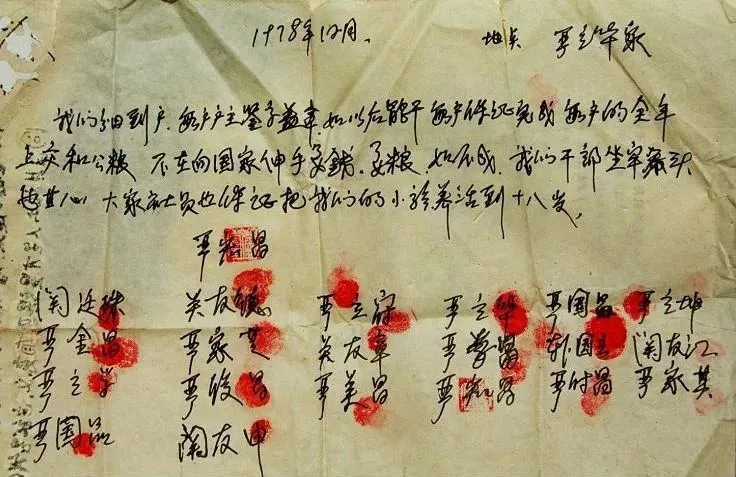 1978年12月。 地点 严立华家
我们分田到户,每户户主签字盖章,如以后能干每户保证完成每户的全年
上交和公粮 不在向国家伸手要钱、要粮,如不成,我们干部坐牢杀头
也甘心 大家社员也保证把我们的小孩养活到十八岁。
严宏昌
关廷珠 关友德 严立符 严立华 严国昌 严立坤
严金昌 严家芝 关友章 严学昌 韩国云 关友江
严立学 严俊昌 严美昌 严宏昌 严付昌 严家其
严国品 关友申